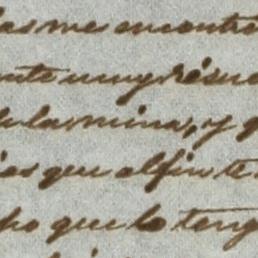 las me encontr
ente muy résue
de la mina, y q
ias que al fin te
po que lo teng